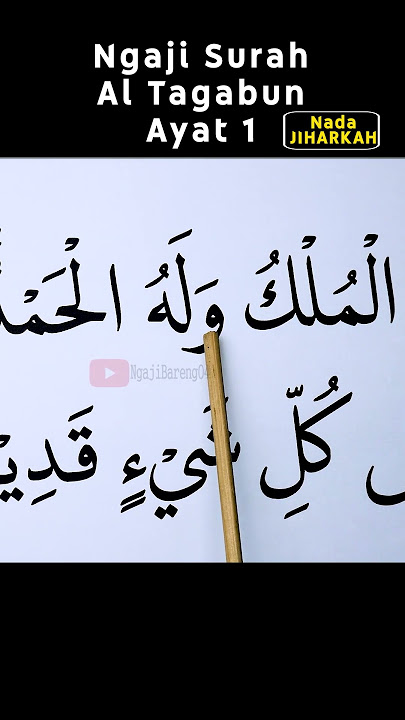 Ngaji Surah
Al Tagabun
Ayat 1
Nada
JIHARKAH
الْمُلْكُ وَلَهُ الْحَمْدُ
NgajiBareng04
كُلِّ شَيْءٍ قَدِيْ